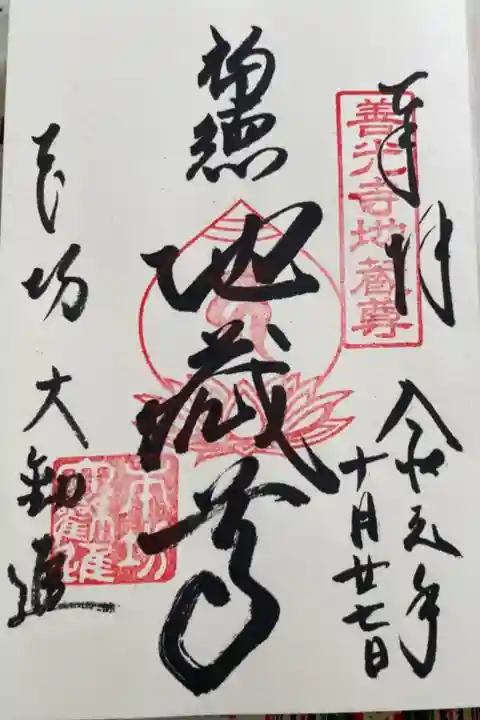 奉拝
善光寺地蔵尊
令和元年
十月廿七日
地蔵尊
本坊 大勧進